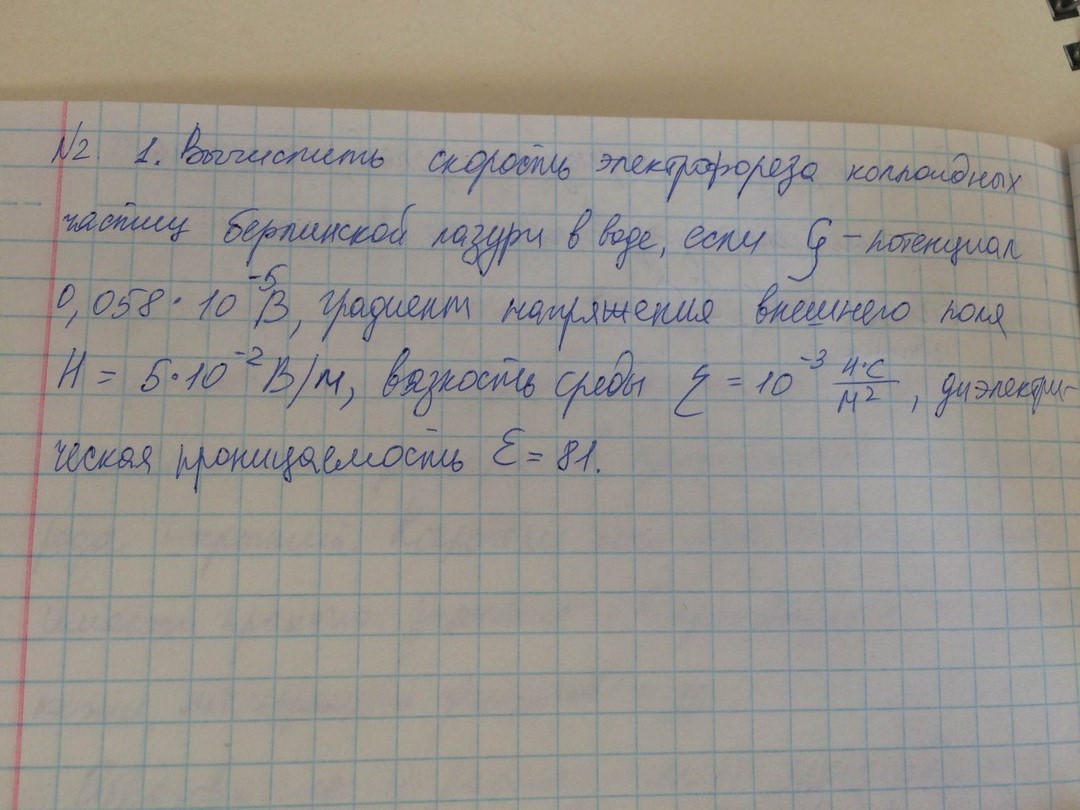 №2. 1. Вычислить скорость электрофореза коллоидных
частиц берлинской лазури в воде, если ζ-потенциал
0,058·10⁻⁵В, градиент напряжения внешнего поля
H = 5·10⁻² В/м, вязкость среды η = 10⁻³ Н·с/м², диэлектри-
ческая проницаемость ε = 81.